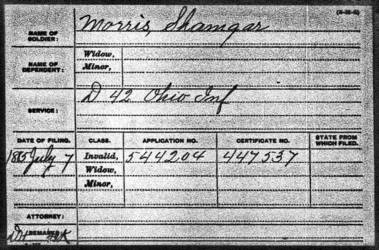 NAME OF SOLDIER: Morris, Shamgar
NAME OF DEPENDENT: Widow,
Minor,
SERVICE: D 42 Ohio Inf
DATE OF FILING. CLASS. APPLICATION NO. CERTIFICATE NO. STATE FROM WHICH FILED.
1885 July 7 Invalid, 544204 447537
Widow,
Minor,
ATTORNEY:
REMARKS: